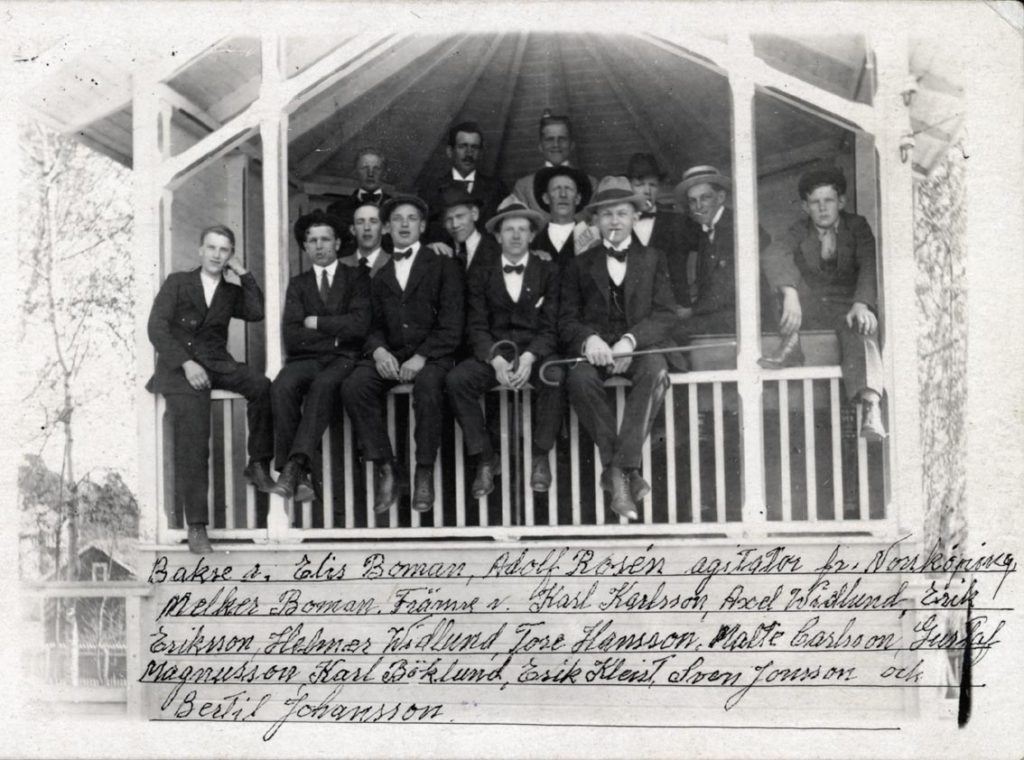 Bakre v. Elis Boman, Adolf Rosén agitator fr. Norrköping,
Melker Boman. Främre v. Karl Karlsson, Axel Widlund, Erik
Eriksson, Helmer Widlund, Tore Hansson, Malte Carlsson, Gustaf
Magnusson, Karl Böklund, Erik Kleist, Sven Jonsson och
Bertil Johansson.